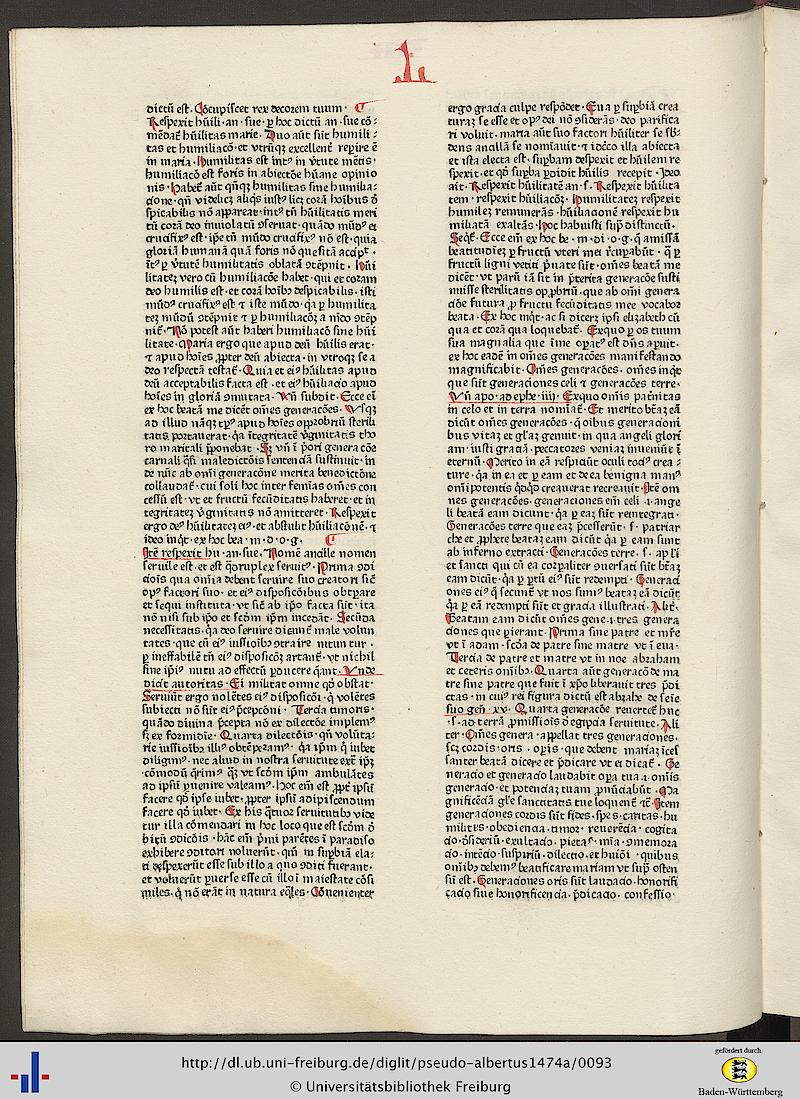 L
dictū est. Cōcupiscet rex decorem tuum.
Respexit hūili. an. sue. ꝑ hoc dictū an. sue cō-
mēdat̄ hūilitas marie. Duo aūt sūt humili-
tas et humiliacō. et vtrūqꝫ excellent̄ reꝑire ē
in maria. Humilitas est intꝰ in v̄tute mētis.
humiliacō est foris in abiectōe hūane opinio
nis. Habet̄ aūt qn̄qꝫ humilitas sine humilia-
cione. qn̄ videlicꝫ aliqͥs iustꝰ licꝫ corā hoībus
spicabilis nō appareat. intꝰ tn̄ hūilitatis meri
tū corā deo inuiolatū ꝯseruat. quādo mūdꝰ ei
crucifixꝰ est. ip̄e tn̄ mūdo crucifixꝰ nō est. quia
gloriā humanā quā foris nō quesitā accipit.
intꝰ ꝑ v̄tutē humilitatis oblatā ꝯtēpnit. Hūi
litateꝫ vero cū humiliacōe habet. qui et coram
deo humilis est. et corā hoībꝫ despicabilis. isti
mūdꝰ crucifixꝰ est ⁊ iste mūdo. qͣ ꝑ humilita
teꝫ mūdū ꝯtēpnit ⁊ ꝑ humiliacōꝫ a mūdo ꝯtēp
nit̄. Nō potest aūt haberi humiliacō sine hūi
litate. Maria ergo que apud deū hūilis erat.
⁊ apud hoīes ꝓpter deū abiecta. in vtroqꝫ se a
deo respectā testat̄. Quia et eiꝰ hūilitas apud
deū acceptabilis facta est. et eiꝰ hūiliacio apud
hoīes in gloriā ꝯmutata. Vn̄ subdit. Ecce em̄
ex hoc beatā me dicent om̄es generacōes. Vsqꝫ
ad illud nāqꝫ tp̄s apud hoīes opprobriū sterili
tatis portauerat. qͣ integritatē v̄ginitatis tho
ro maritali p̄ponebat. Sꝫ vn̄ ī pori generacōe
carnali qͣsi maledictōis sentenciā sustinuit. in
de nūc ab om̄i generacōne merita benedictōne
collaudat̄. cui soli hoc inter feminas om̄es con
cessū est. vt et fructū fecūditatis haberet. et in
tegritateꝫ v̄ginitatis nō amitteret. Respexit
ergo deꝰ hūilitateꝫ eiꝰ. et abstulit hūiliacōnē. ⁊
ideo inqͥt. ex hoc bea. m. d. o. g.
Itē respexit hu. an. sue. Nomē ancille nomen
seruile est. et est qͣdruplex seruitꝰ. Prima ꝯdi
ciōis qua om̄ia debent seruire suo creatori sic̄
opꝰ factori suo. et eiꝰ disposicōibus obtꝑare
et sequi instituta. vt sic̄ ab ip̄o facta sūt. ita
nō nisi sub ip̄o et scdm ip̄m incedāt. Secūda
necessitatis. qͣ deo seruire dicunt̄ male volun
tates. que cū eiꝰ iussioībꝫ ꝯtraire nitun tur.
ꝑ ineffabilē tn̄ eiꝰ disposicōꝫ artant̄. vt nichil
sine ip̄iꝰ nutu ad effectū ꝑducere qͣnt. Vnde
dicit autoritas. Ei militat omne qd̓ obstat.
Seruiūt ergo nolētes eiꝰ disposicōi. qͥ volētes
subiecti nō sūt eiꝰ p̄cepcōni. Tercia timoris.
quādo diuina p̄cepta nō ex dilectōe implemꝰ
sꝫ ex formidīe. Quarta dilectōis. qn̄ volūta-
rie iussioībꝫ illiꝰ obtēꝑamꝰ. qͣ ip̄m qͥ iubet
diligimꝰ. nec aliud in nostra seruitute ext̄ ip̄ꝫ
cōmodū qͣrimꝰ. qͣꝫ vt scdm ip̄m ambulātes
ad ip̄sū ꝑuenire valeamꝰ. Hoc em̄ est ꝓpt̄ ip̄sū
facere qd̓ ip̄e iubet. ꝓpter ip̄sū adipiscendum
facere qd̓ iubet. Ex his qͣtuor seruitutibꝫ vide
tur illa cōmendari in hoc loco que est scdm
bitū ꝯdicōis. hāc em̄ pͥmi parētes ī paradiso
exhibere ꝯditori noluerūt. qn̄ in suꝑbiā ela-
ti despexerūt esse sub illo a quo ꝯditi fuerant.
et voluerūt ꝑuerse esse cū illo ī maiestate cōsi
miles. qͥ nō erāt in natura eqͣles. Cōuenienter
ergo gracia culpe respōdet. Eua ꝑ suꝑbiā crea
turaꝫ se esse et opꝰ dei nō ꝯsiderās. deo parifica
ri voluit. maria aūt suo factori hūiliter se sb̄-
dens ancillā se nomīauit. ⁊ idcō illa abiecta
et ista electa est. suꝑbam despexit et hūilem re
spexit. et qd̓ suꝑba ꝑdidit hūilis recepit. Ideo
ait. Respexit hūilitatē an. s. Respexit hūilita
tem. respexit hūiliacōꝫ. Humilitateꝫ respexit
humileꝫ remunerās. hūiliacionē respexit hu
miliatā exaltās. Hoc habuisti supͣ distinctū.
Seqͥt̄. Ecce em̄ ex hoc be. m. di. o. g. qͣ amissā
beatitudieꝫ ꝑ fructū vteri mei recuꝑabūt. qͣ ꝑ
fructū ligni vetiti pͥuate sūt. om̄es beatā me
dicēt. vt parū iā sit in p̄terita generacōe susti
nuisse sterilitatis opprbriū. que ab om̄i genera
cōe futura ꝓ fructu fecūditatis mee vocabor
beata. Ex hoc inqͥt. ac si diceret ip̄si elizabeth cū
qua et corā qua loquebat̄. Exquo ꝑ os tuum
sua magnalia que in me oꝑatꝰ est dn̄s aꝑuit.
ex hoc eadē in om̄es generacōes manifestando
magnificabit. Om̄es generacōes. om̄es inqͥt
que sūt generaciones celi ⁊ generacōes terre.
Vn̄ apo. ad ephe. iij. Exquo om̄is pat̄nitas
in celo et in terra nomīat̄. Et merito bt̄aꝫ eā
dicūt om̄es generacōes. qͣ oībus generacioni
bus vitaꝫ et gl̄iaꝫ genuit. in qua angeli glori
am. iusti graciā. peccatores veniaꝫ inueniūt ī
eternū. Merito in eā respiciūt oculi tociꝰ crea-
ture. qͣ in ea et ꝑ eam et de ea benigna manꝰ
om̄ipotentis qͥcqͥd creauerat recreauit. Itē om
nes generacōes. generaciones em̄ celi. i. ange
li beatā eam dicunt. qͣ ꝑ eaꝫ sūt reintegrati.
Generacōes terre que eaꝫ p̄cesserūt. s. patriar
che et ꝓphete beataꝫ eam dicūt qͣ ꝑ eam sunt
ab inferno extracti. Generacōes terre. s. apl̄i
et sancti qui cū ea corꝑaliter ꝯuersati sūt bt̄aꝫ
eam dicūt. qͣ ꝑ ꝑtū eiꝰ sūt redempti. Generaci
ones eiꝰ qͥ secuti vt nos sumꝰ beataꝫ eā dicūt
qͣ ꝑ eā redempti sūt et gracia illustrati. Alit̄.
Beatam eam dicūt om̄es gene. i. tres genera
ciones que pͥerant. Prima sine patre et mr̄e
vt ī adam. scd̓a de patre sine matre. vt ī eua.
Tercia de patre et matre vt in noe abraham
et ceteris om̄ibꝫ. Quarta aūt generacō de ma
tre sine patre que fuit ī xpo. liberauit tres p̄di
ctas. in cuiꝰ rei figura dictū est abrahe de seīe
suo gen̄. xv. Quarta generacōe reuertet̄ huc
.s. ad terrā ꝓmissiōis de egipcia seruitute. Ali
ter. Om̄es genera. appellat tres generaciones.
scꝫ cordis. oris. oꝑis. que debent mariaꝫ īces
santer beatā dicere et p̄dicare vt et dicat̄. Ge
neracio et generacio laudabit oꝑa tua. i. om̄is
generacio. et potenciaꝫ tuam ꝓnūciabūt. Ma
gnificēciā gl̄ie sanctitatis tue loquent̄ ⁊c̄. Item
generaciones cordis sūt fides. spes. caritas. hu
militas. obediencia. timor. reuerēcia. cogita
cio. ꝯsideriū. exultacio. pietas. mīa. ꝯmemora
cio. intēcio. suspiriū. dilectio. et huiōi. quibus
om̄ibꝫ debemꝰ beatificare mariam vt supͣ osten
sū est. Generaciones oris sūt laudacio. honorifi
cacio siue honorificencia. p̄dicacio. confessio.
http://dl.ub.uni-freiburg.de/diglit/pseudo-albertus1474a/0093
© Universitätsbibliothek Freiburg
gefördert durch
Baden-Württemberg